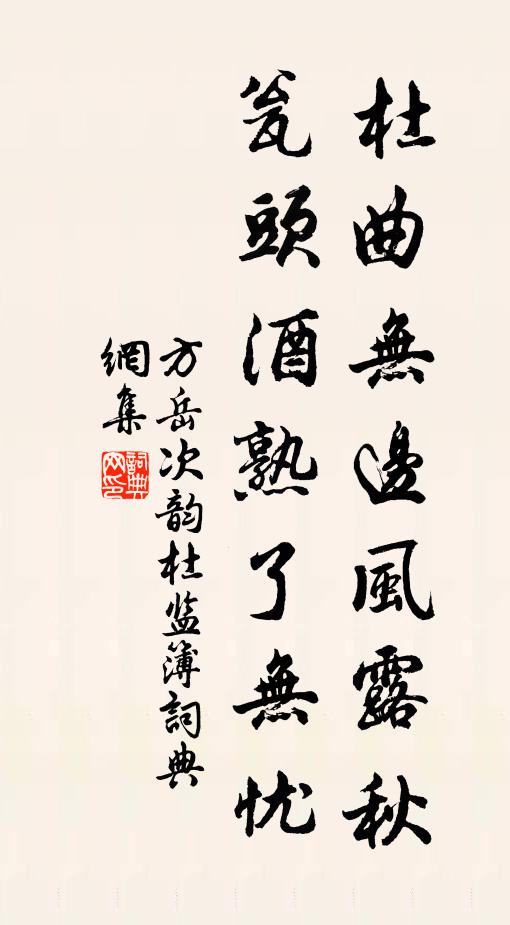 杜曲無邊風露秋
瓮頭酒熟了無忧
方岳次韵杜监簿詞典
網集
詞典網印